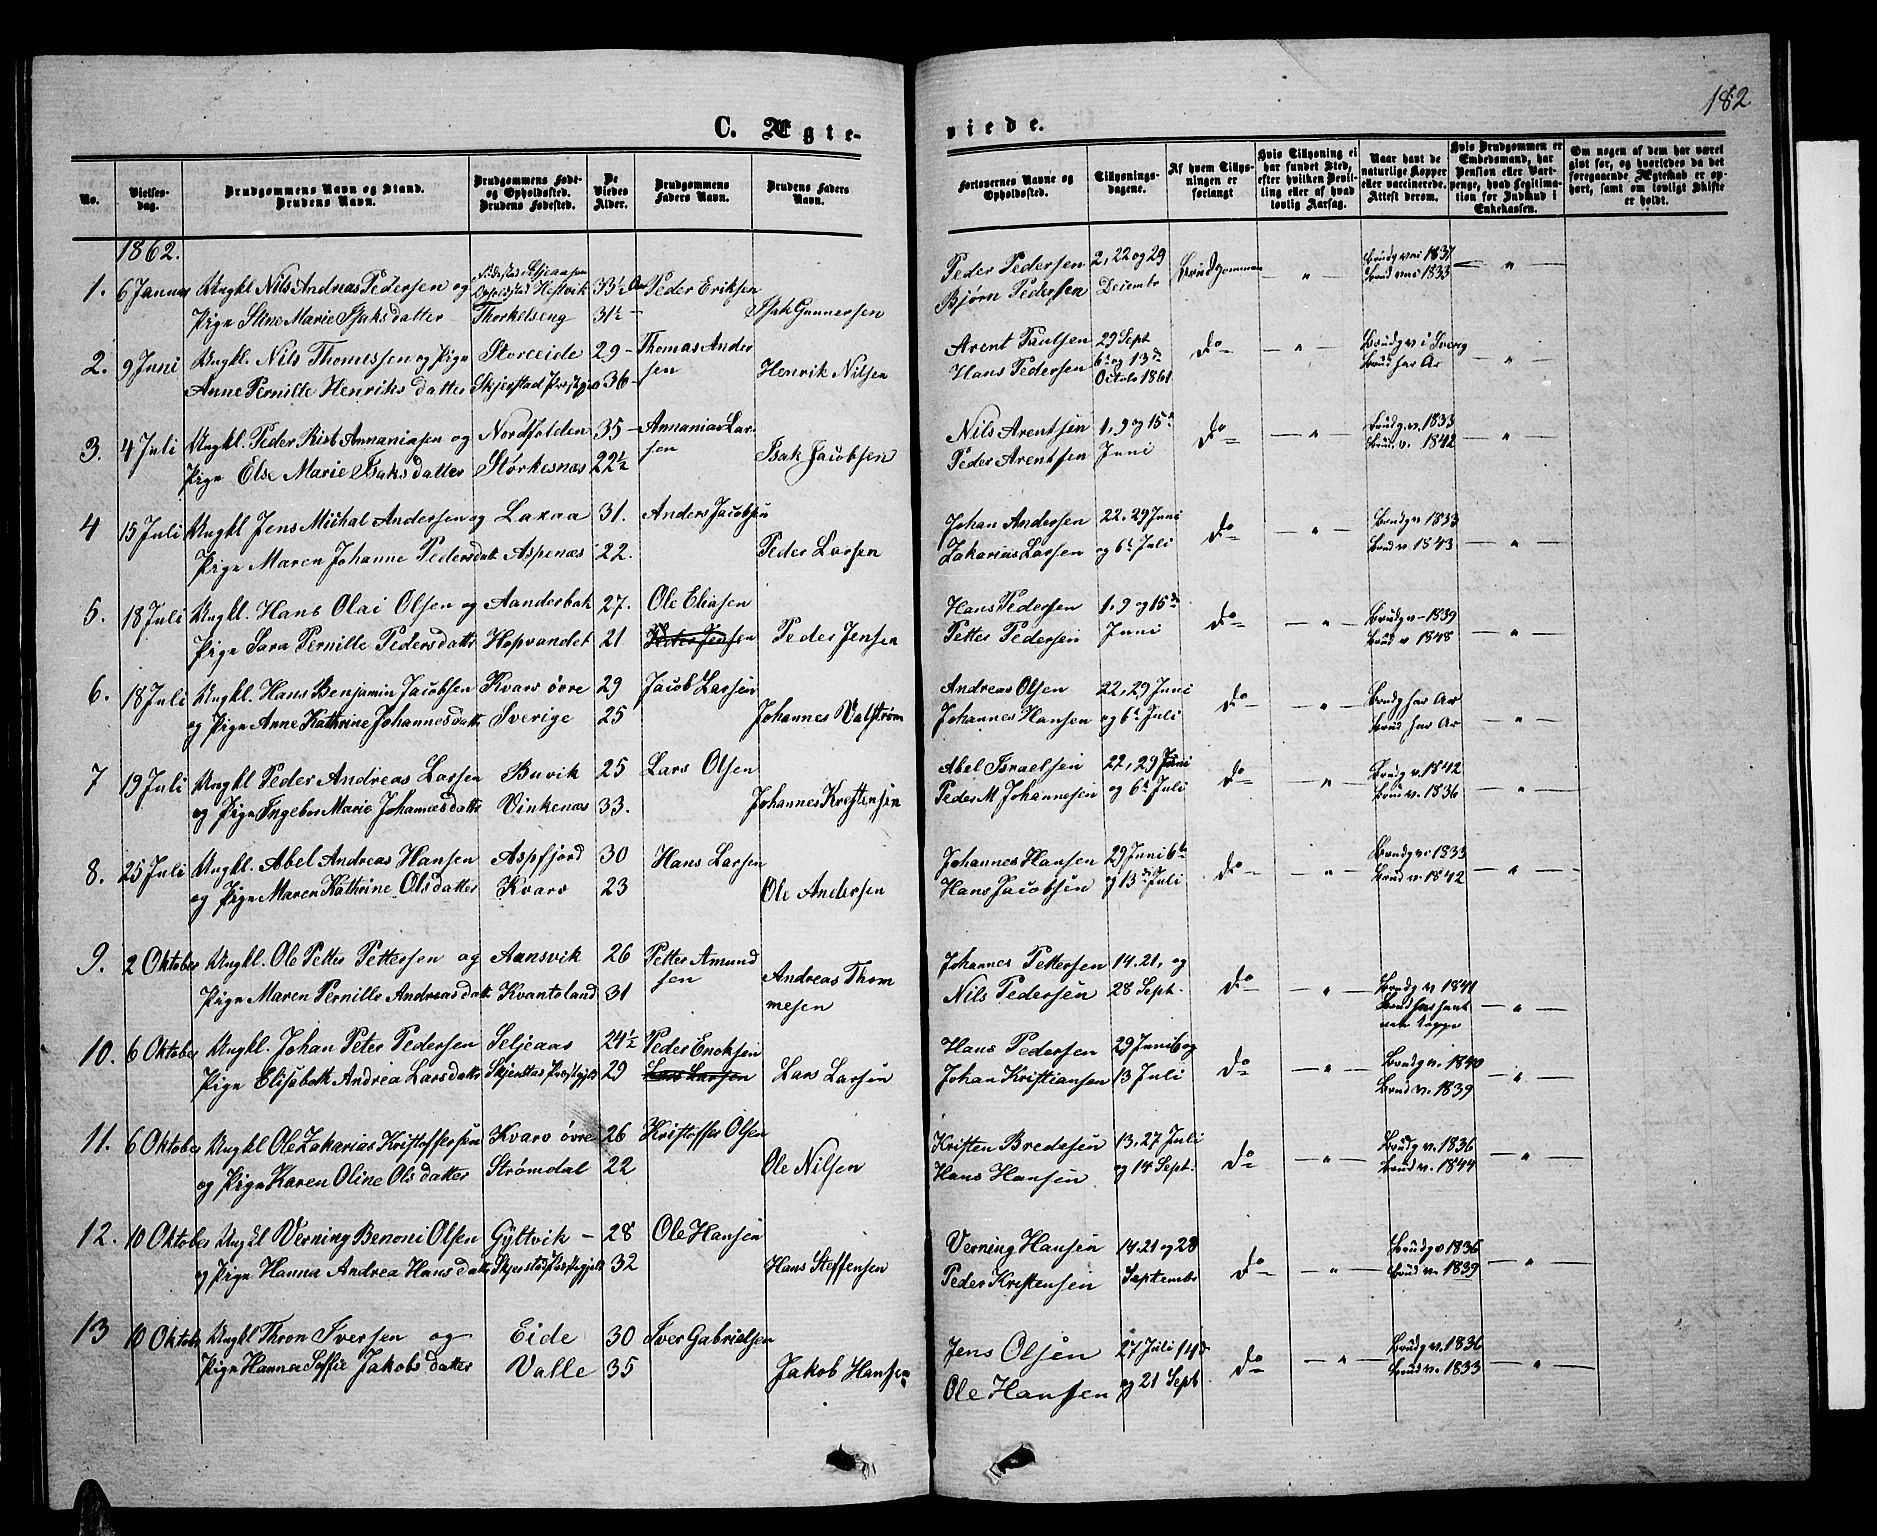 182
C. Ægte-
viede.
No.
Vielses-
dag.
Brudgommens Navn og Stand.
Brudens Navn.
Brudgommens Føde-
og Opholdsted.
Brudens Fødested.
De
Viedes
Alder.
Brudgommens
Faders Navn.
Brudens Faders
Navn.
Forlovernes Navne og
Opholdsted.
Tillysnings-
dagene.
Af hvem Tillys-
ningen er
forlangt
Hvis Tillysning ei
har fundet Sted,
efter hvilken Bevil-
ling eller af hvad
lovlig Aarsag.
Naar havt de
naturlige Kopper
eller vaccinerede.
Attest derom.
Hvis Brudgommen er
Embedsmand, har
Pension eller Vart-
penge, hvad Legitima-
tion for Indskud i
Enkekassen.
Om nogen af dem har været
givt før, og hvorledes da det
foregaaende Ægteskab er op-
hørt, samt om lovligt Skifte
er holdt.
1862.
1. 6 Januar Ungkl Nils Andreas Pedersen og Fødested Seljeaasen Opholdsted Hestvik 33½ Aar Peder Eriksen
Pige Stine Marie Isaksdatter Thorkelseng 31½ – Isak Gunnersen
Peder Pedersen 2, 22 og 29 Brudgommen " Brudg vac 1837 "
Bjørn Pedersen Decembr Brud vac 1833
2. 9 Juni Ungkl. Nils Thomessen og Pige Storeeide 29 – Thomas Ander
sen
Anne Pernille Henriksdatter Skjerstad Præstegj 36 – Henrik Nilsen
Arent Paulsen 29 Sept Do " Brudg v i Sverg "
Hans Pedersen 6te og 13de Brud har Ar
Octobr 1861
3. 4 Juli Ungkl. Peder Rist Annaniasen og Nordfolden 35 – Annanias Lar-
sen
Pige Else Marie Isaksdatter Størkesnæs 22½ Isak Jacobsen
Nils Arentsen 1, 9 og 15de Do " Brudg v. 1833 "
Peder Arentsen Juni Brud v. 1842
4 15 Juli Ungkl Jens Michal Andersen og Laxaa 31. Anders Jacobsen
Pige Maren Johanne Pedersdatt Aspenæs 22. Peder Larsen
Johan Andersen 22, 29 Juni Do " Brudg v 1833
Zakarias Larsen og 6te Juli Brud v 1843 "
5. 18 Juli Ungkl. Hans Olai Olsen og Aanderbak 27. Ole Eliasen
Pige Sara Pernille Pedersdatt Hopvandet 21 Peder Jensen Peder Jensen
Hans Pedersen 1, 9 og 15de Do " Brudg v – 1839
Petter Pedersen Juni Brud v 1848 "
6. 18 Juli Ungkl. Hans Benjamin Jacobsen Kvarv øvre 29 Jacob Larsen
og Pige Anne Kathrine Johannesdatt Sverige 25 Johannes Valstrøm
Andreas Olsen 22, 29 Juni Do " Brudg har Ar
Johannes Hansen og 6te Juli Brud har Ar "
7 19 Juli Ungkl Peder Andreas Larsen Buvik 25 Lars Olsen
og Pige Ingebor Marie Johannesdatt Vinkenæs 33. Johannes Kristensen
Abel Israelsen 22, 29 Juni Do " Brudg v. 1842
Peder M Johannesen og 6te Juli Brud v. 1836 "
8. 25 Juli Ungkl. Abel Andreas Hansen Aspfjord 30 Hans Larsen
og Pige Maren Kathrine Olsdatter Kvarv 23 Ole Andersen
Johannes Hansen 29 Juni 6te Do " Brudg v. 1833 "
Hans Jacobsen og 13de Juli Brud v. 1842
9. 2 Oktober Ungkl. Ole Petter Pettersen og Aansvik 26 Petter Amund
sen
Pige Maren Pernille Andreasdatt Kvantoland 31 Andreas Thom
mesen
Johannes Pettersen 14. 21, og Do " Brudg v. 1841
Nils Pedersen 28 Sept. Brud har havt
nat Koppe "
10. 6 Oktober Ungkl. Johan Peter Pedersen Seljeaas 24½ Peder Enoksen
Pige Elisabeth Andrea Larsdatt Skjerstad Præstgjeld 29 Lars Larsen Lars Larsen
Hans Pedersen 29 Juni 6 og Do " Brudg v. 1840
Johan Kristiansen 13 Juli Brud v. 1839 "
11. 6 Oktober Ungkl Ole Zakarias Kristoffersen Kvarv øvre 26 Kristoffer Olsen
og Pige Karen Oline Olsdatter Strømdal 22 Ole Nilsen
Kristen Bredesen 13, 27 Juli Do " Brudg v. 1836
Hans Hansen og 14 Sept. Brud v. 1844 "
12. 10 Oktober Ungkl Verning Benoni Olsen Gyltvik – 28 Ole Hansen
og Pige Hanna Andrea Hansdatt Skjerstad Præstgjeld 32 Hans Steffensen
Verning Hansen 14. 21 og 28 Do " Brudg v 1836
Peder Kristensen Septembr Brud v. 1839 "
13 10 Oktobr Ungkl Thron Iversen og Eide 30 Iver Gabrielsen
Pige Hanna Soffie Jakobsdatter Valle 35 Jakob Hansen
Jens Olsen 27 Juli 14de Do " Brudg v. 1836
Ole Hansen og 21 Sept. Brud v. 1833 "